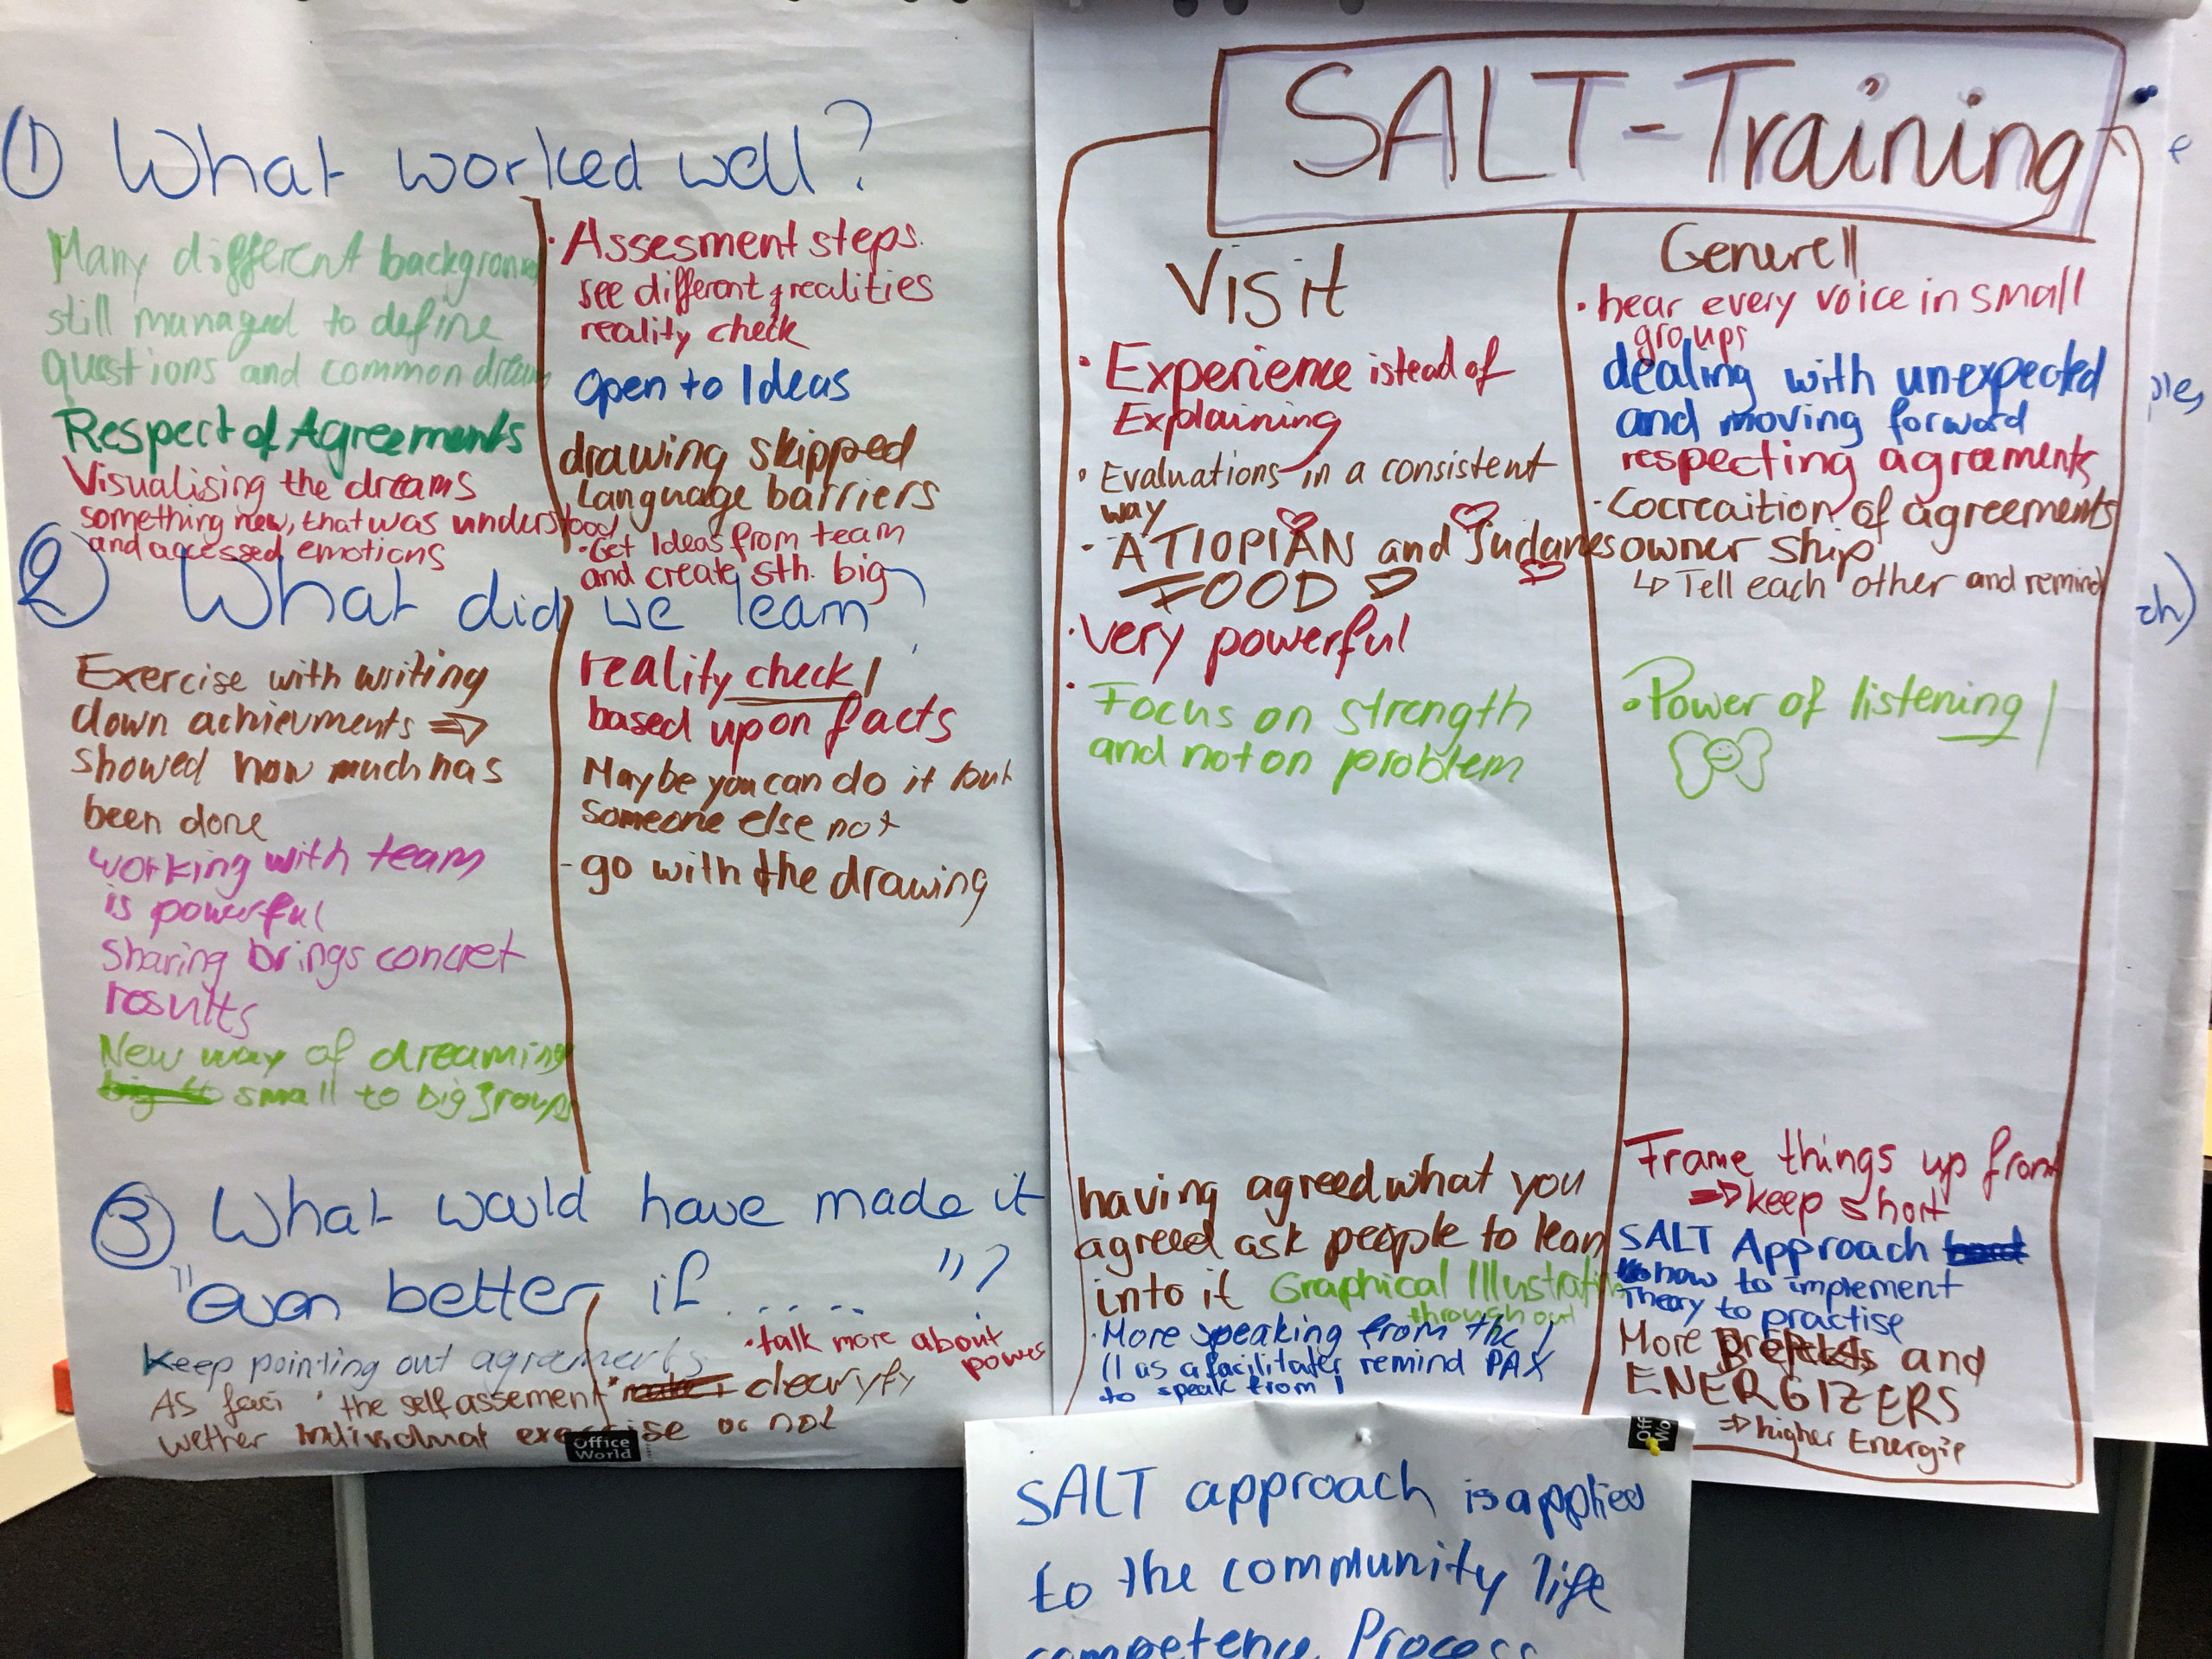 ① What worked well?
Many different background
still managed to define
questions and common dream
Respect of Agreements
Visualising the dreams
something new, that was understood
and accessed emotions
· Assesment steps.
see different realities
reality check
Open to Ideas
drawing skipped
Language barriers
· Get Ideas from team
and create sth. big
② What did we learn?
Exercise with writing
down achievments ⇒
showed how much has
been done
working with team
is powerful
Sharing brings concret
results
New way of dreaming
small to big group
reality check!
based upon facts
Maybe you can do it but
someone else not
- go with the drawing
③ What would have made it
"even better if ..... "?
Keep pointing out agreements
· talk more about
power
As faci "the self assement" clearyfy
wether individual exercise or not
Office
World
SALT-Training
Visit
· Experience istead of
Explaining
· Evaluations in a consistent
way
- ATIOPIAN and Sudanes
FOOD
· Very powerful
· Focus on strength
and not on problem
having agreed what you
agreed ask people to lean
into it
Graphical Illustration
through out
· More speaking from the I
(I as a facilitater remind PAX
to speak from I
Generell
· hear every voice in small
groups
dealing with unexpected
and moving forward
respecting agreements
- Cocreaition of agreements
owner ship
↳ Tell each other and remind
· Power of listening!
Frame things up front
⇒ keep short
SALT Approach
how to implement
Theory to practise
More and
ENERGIZERS
⇒ higher Energie
Off
Wo
e
ples,
ch)
SALT approach is applied
to the community life
competence Process